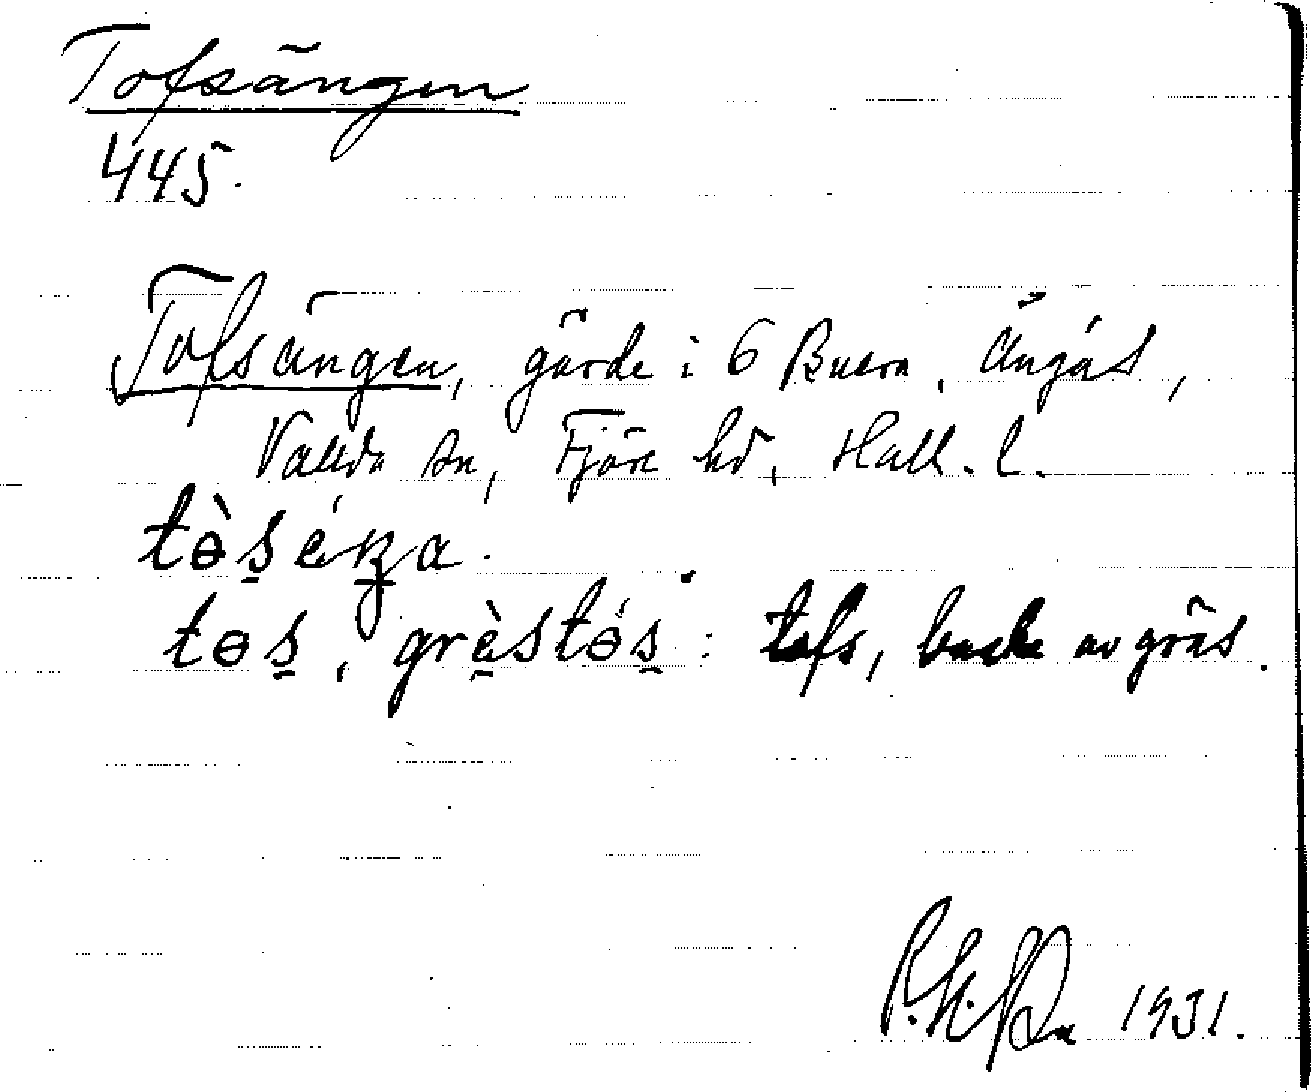 Tofsängen
445.
Tofsängen, gärde i 6 Buera, Ängås,
Vallda sn, Fjäre hd, Hall. l.
tòs̠éŋa.
tɵs̠, grè̠stɵ́s̠: tofs, buske av gräs.
1931.